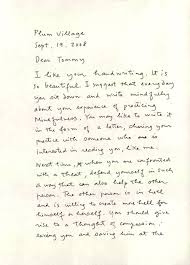 Plum Village
Sept. 19. 2008
Dear Tommy
I like your handwriting. It is
so beautiful. I suggest that everyday
you sit down and write mindfully
about you experience of practicing
Mindfulness. You may like to write it
in the form of a letter, sharing your
practice with someone who may be
interested in reading you, like me.
Next time, when you are confronted
with a threat, defend yourself in such
a way that can also help the other
person. The other person is in hell
and is willing to create more hell for
himself or herself. You should give
rise to a thought of compassion:
loving you and saving him at the